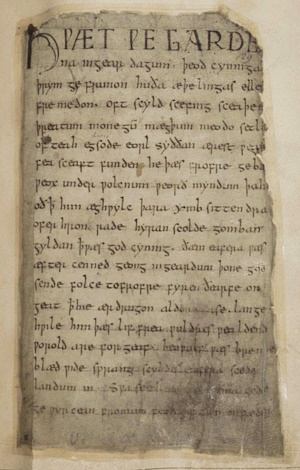 HǷÆT ǷE GARDE
na ingear dagum . þeod cyninga
þrym ge frunon huða æþelingas elle
fre medon . oft scyld scefing sceaþe
þreatum monegū mægþum meodo setl
of teah egsode eorl syððan ærest ƿear
fea sceaft funden he þæs frofre geba
ƿeox under ƿolcnum ƿeorð myndum þah
oð ꝥ him æghƿylc þara ymb sittendra
ofer hron rade hyran scolde gomban
gyldan ꝥ ƿæs god cyning . ðæm eafera ƿæs
æfter cenned geong ingeardum þone god
sende folce tofrofre fyren ðearfe on
geat ꝥ hie ær drugon aldor ase . lange
hƿile him þæs lif frea ƿuldres ƿealdend
ƿorold are forgeaf . beoƿulf ƿæs breme
blæd ƿide sprang scyldes eafera scede
landum in . Sƿa sceal gode
ge ƿyrcean fromum feoh giftum on fæder